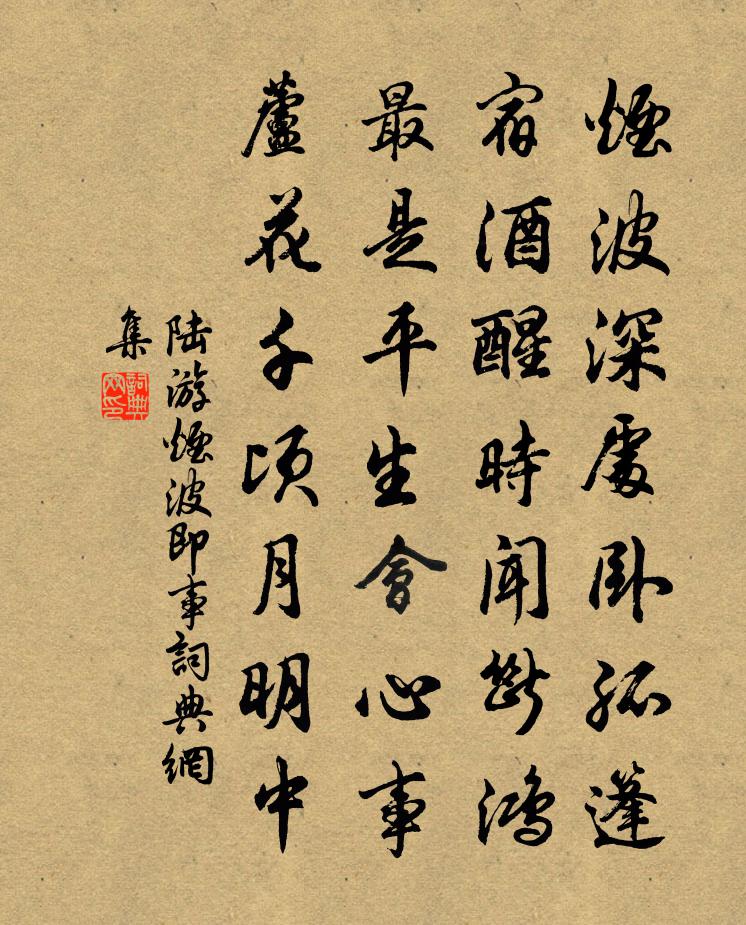 煙波深處臥孤蓬
宿酒醒時聞斷鴻
最是平生會心事
蘆花千頃月明中
陆游煙波即事詞典網
集
詞典網印